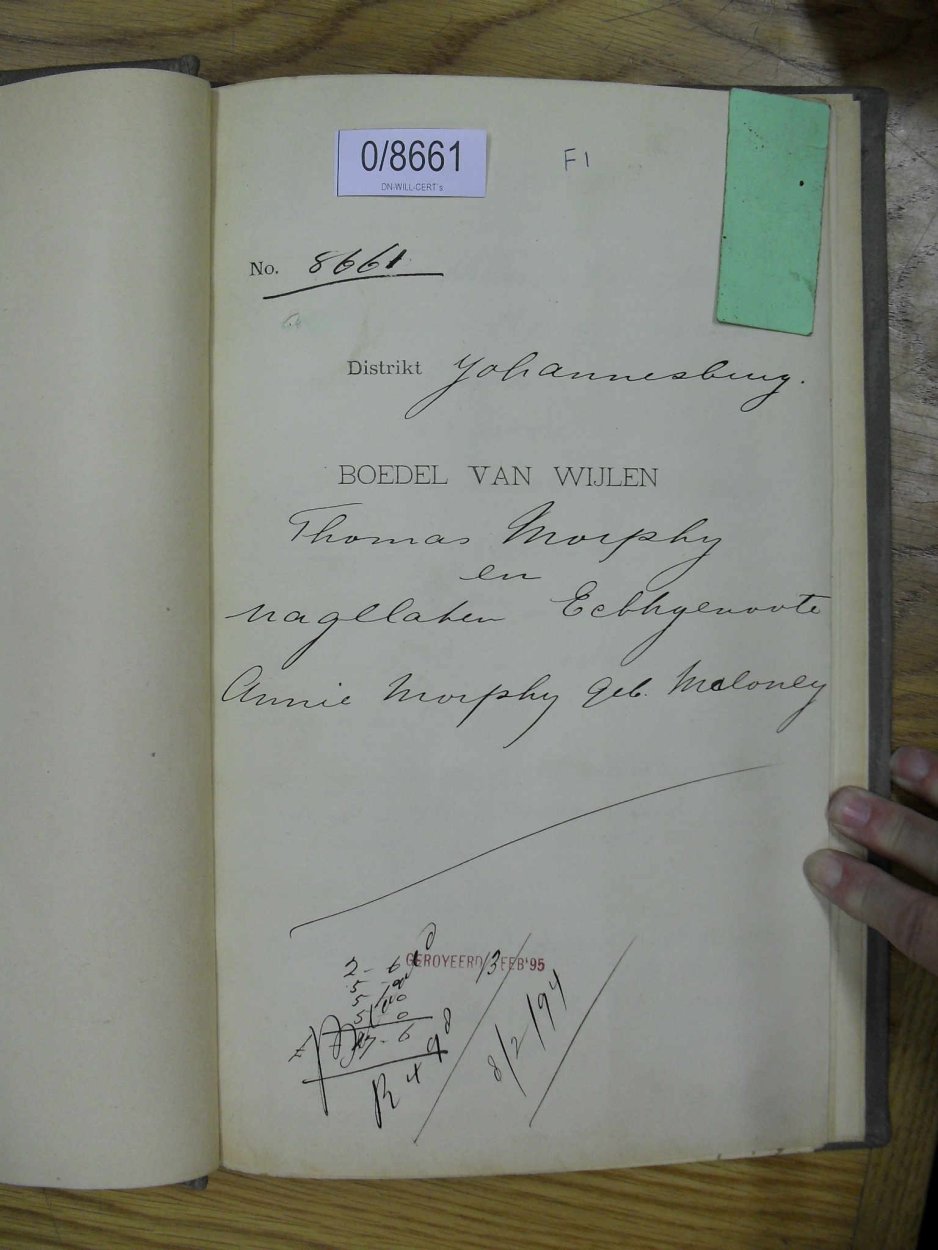 0/8661
DN-WILL-CERT's
F1
No. 8661
Distrikt Johannesburg.
BOEDEL VAN WIJLEN
Thomas Morphy
en
nagellaten Echtgenoote
Annie Morphy geb. Meloney
GEROYEERD 13 FEB '95
2-6
8/2/94